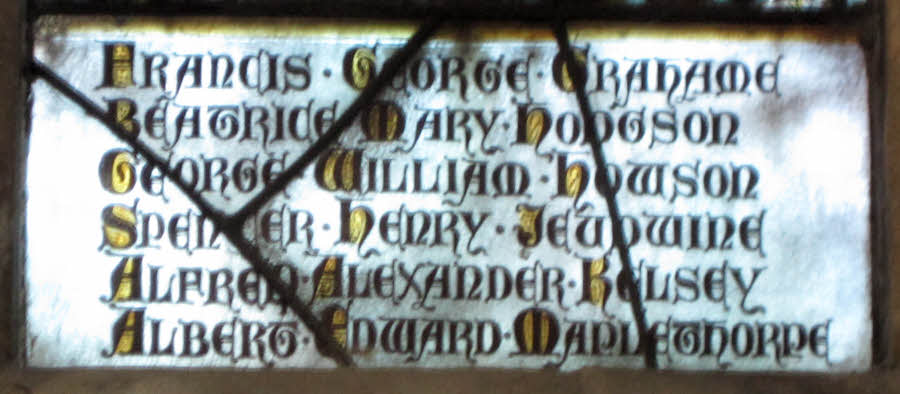 FRANCIS · GEORGE · GRAHAME
BEATRICE · MARY · HODGSON
GEORGE · WILLIAM · HOWSON
SPENCER · HENRY · JEUDWINE
ALFRED · ALEXANDER · KELSEY
ALBERT · EDWARD · MAPLETHORPE